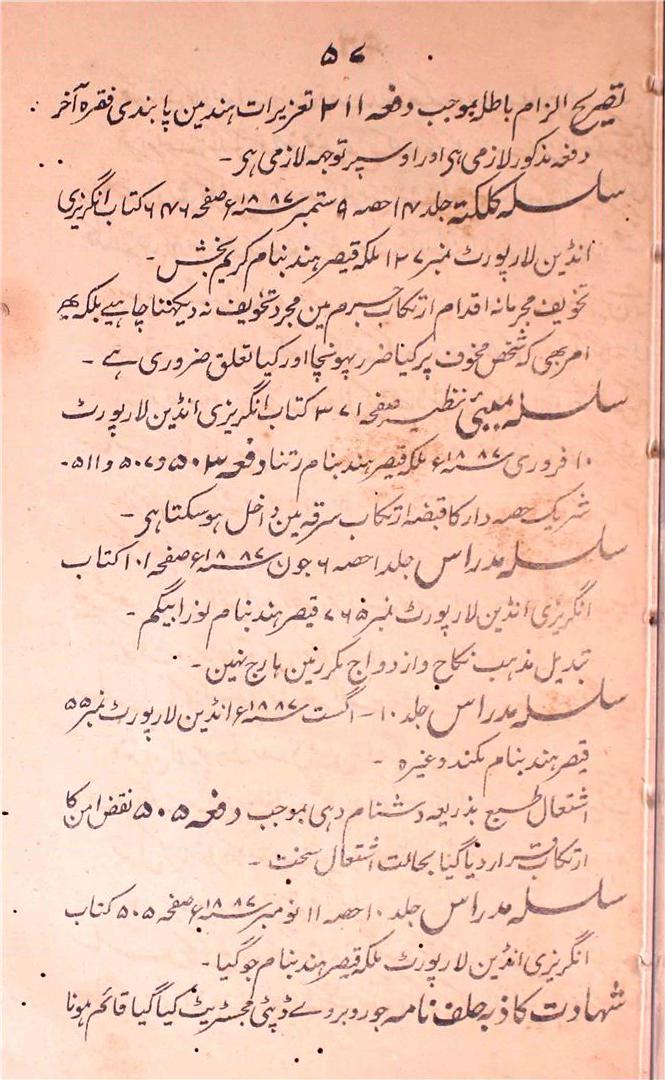 ۵۷
تصریح الزام باطل بموجب دفعہ ۲۱۱ تعزیرات ہند مین پابندی فقرہ آخر
دفعہ مذکور لازمی ہی اور اوسپر توجہ لازمی ہی ۔
سلسلہ کلکتہ جلد ۱۴ حصہ ۹ ستمبر ۱۸۸۷ء صفحہ ۶۴۶ کتاب انگریزی
انڈین لا رپورٹ نمبر ۱۲۷ ملکہ قیصر ہند بنام کریم بخش ۔
تخویف مجرمانہ اقدام ارتکاب جرم مین مجرد تخویف نہ دیکھنا چاہیے بلکہ یہ
امر بھی کہ شخص مخوف پر کیا ضرر پہونچا اور کیا تعلق ضروری ہے ۔
سلسلہ بمبئی نظیر صفحہ ۳۷۱ کتاب انگریزی انڈین لا رپورٹ
۱۰ فروری ۱۸۸۷ء ملکہ قیصر ہند بنام رتنا دفعہ ۵۰۳ و ۵۰۷ و ۵۱۱ ۔
شریک حصہ دار کا قبضہ ارتکاب سرقہ مین داخل ہو سکتا ہی ۔
سلسلہ مدراس جلد ۱۰ حصہ ۶ جون ۱۸۸۷ء صفحہ ۱۰۱ کتاب
انگریزی انڈین لا رپورٹ نمبر ۷۶۵ قیصر ہند بنام نورا بیگم ۔
تبدیل مذہب نکاح و ازدواج مکرر مین ہارج نہین ۔
سلسلہ مدراس جلد ۱۰ ۔ اگست ۱۸۸۷ء انڈین لا رپورٹ نمبر ۵۵
قیصر ہند بنام مکند وغیرہ ۔
اشتعال طبع بذریعہ دشنام دہی بموجب دفعہ ۵۰۵ نقض امن کا
ارتکاب قرار دیا گیا بحالت اشتعال سخت ۔
سلسلہ مدراس جلد ۱۰ حصہ ۱۱ نومبر ۱۸۸۷ء صفحہ ۵۰۵ کتاب
انگریزی انڈین لا رپورٹ ملکہ قیصر ہند بنام جوگیا ۔
شہادت کاذبہ حلف نامہ جو روبروے ڈپٹی مجسٹریٹ کیا گیا قائم ہونا